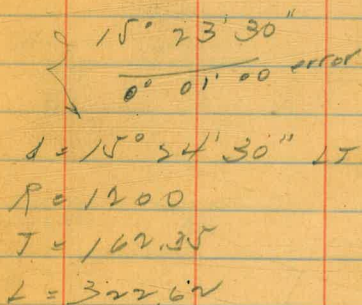 15° 23' 30"
0° 01' 00 error
d = 15° 24' 30" LT
R = 1200
T = 162.35
L = 322.62